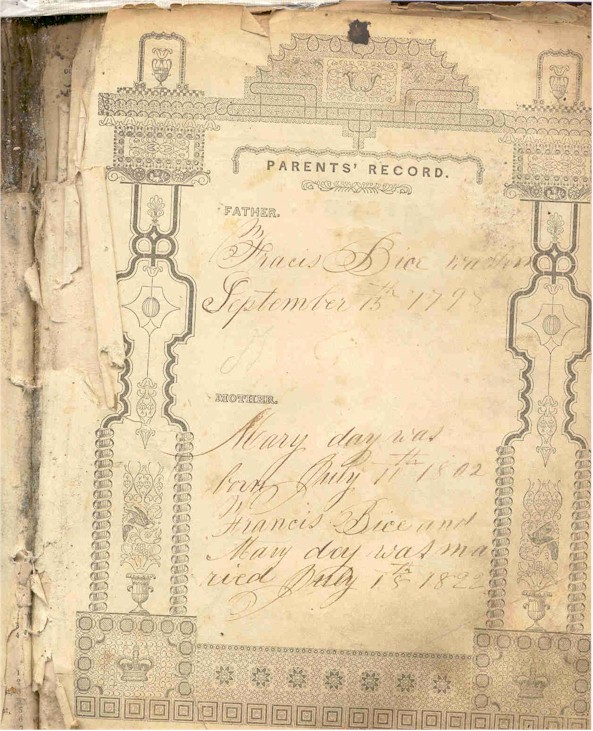 PARENTS' RECORD.
FATHER.
Fracis Bice was born
September 15th 179
MOTHER.
Mary day was
born July 1th 1802
Francis Bice and
Mary day was ma
ried July 18th 182